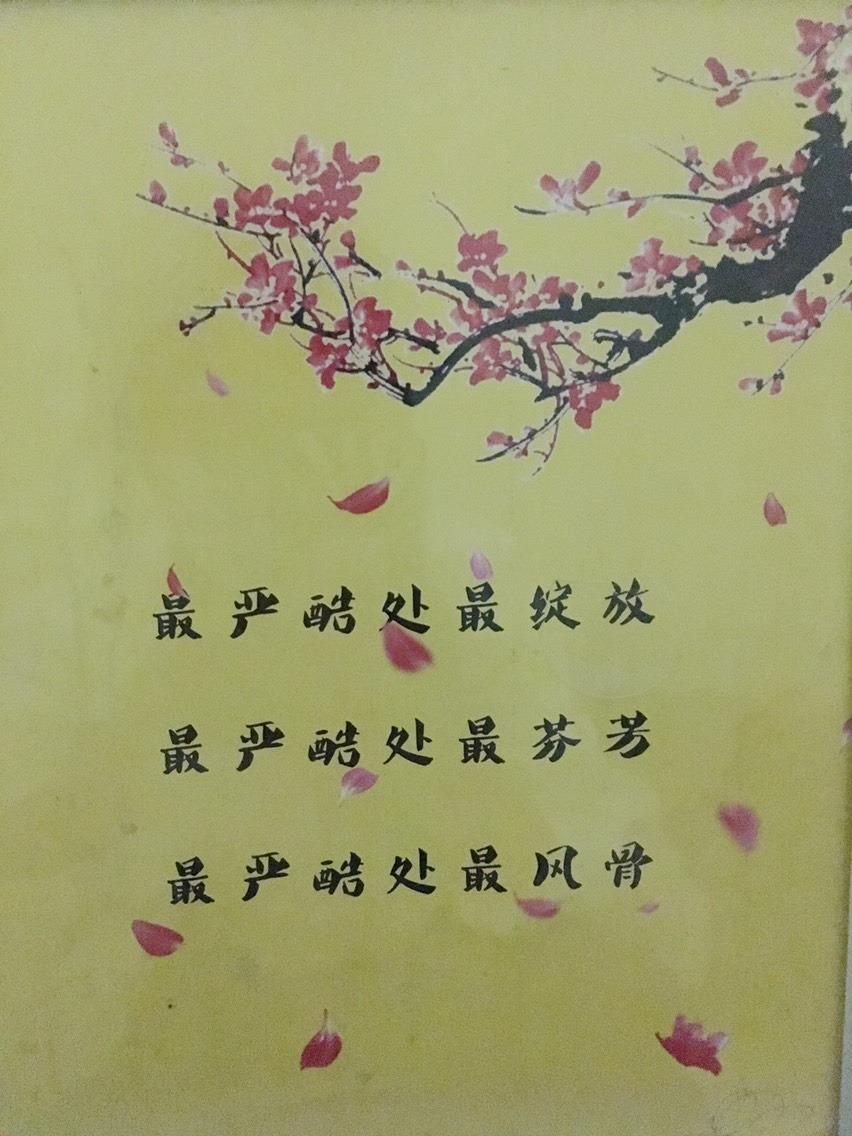 最严酷处最绽放
最严酷处最芬芳
最严酷处最风骨